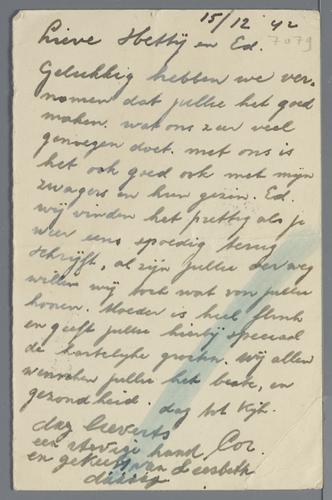 15/12 42
7079
Lieve Hetty en Ed.
Gelukkig hebben we ver-
nomen dat jullie het goed
maken. wat ons zeer veel
genoegen doet. met ons is
het ook goed ook met mijn
zwagers en hun gezin. Ed.
wij vinden het prettig als je
weer eens spoedig terug
schrijft, al zijn jullie ver weg
willen wij toch wat van jullie
hooren. Moeder is heel flink
en geeft jullie hierbij speciaal
de hartelijke groeten. Wij allen
wenschen jullie het beste, en
gezondheid. dag tot kijk.
dag
een stevige hand, Cor.
en gekust van Liesbeth